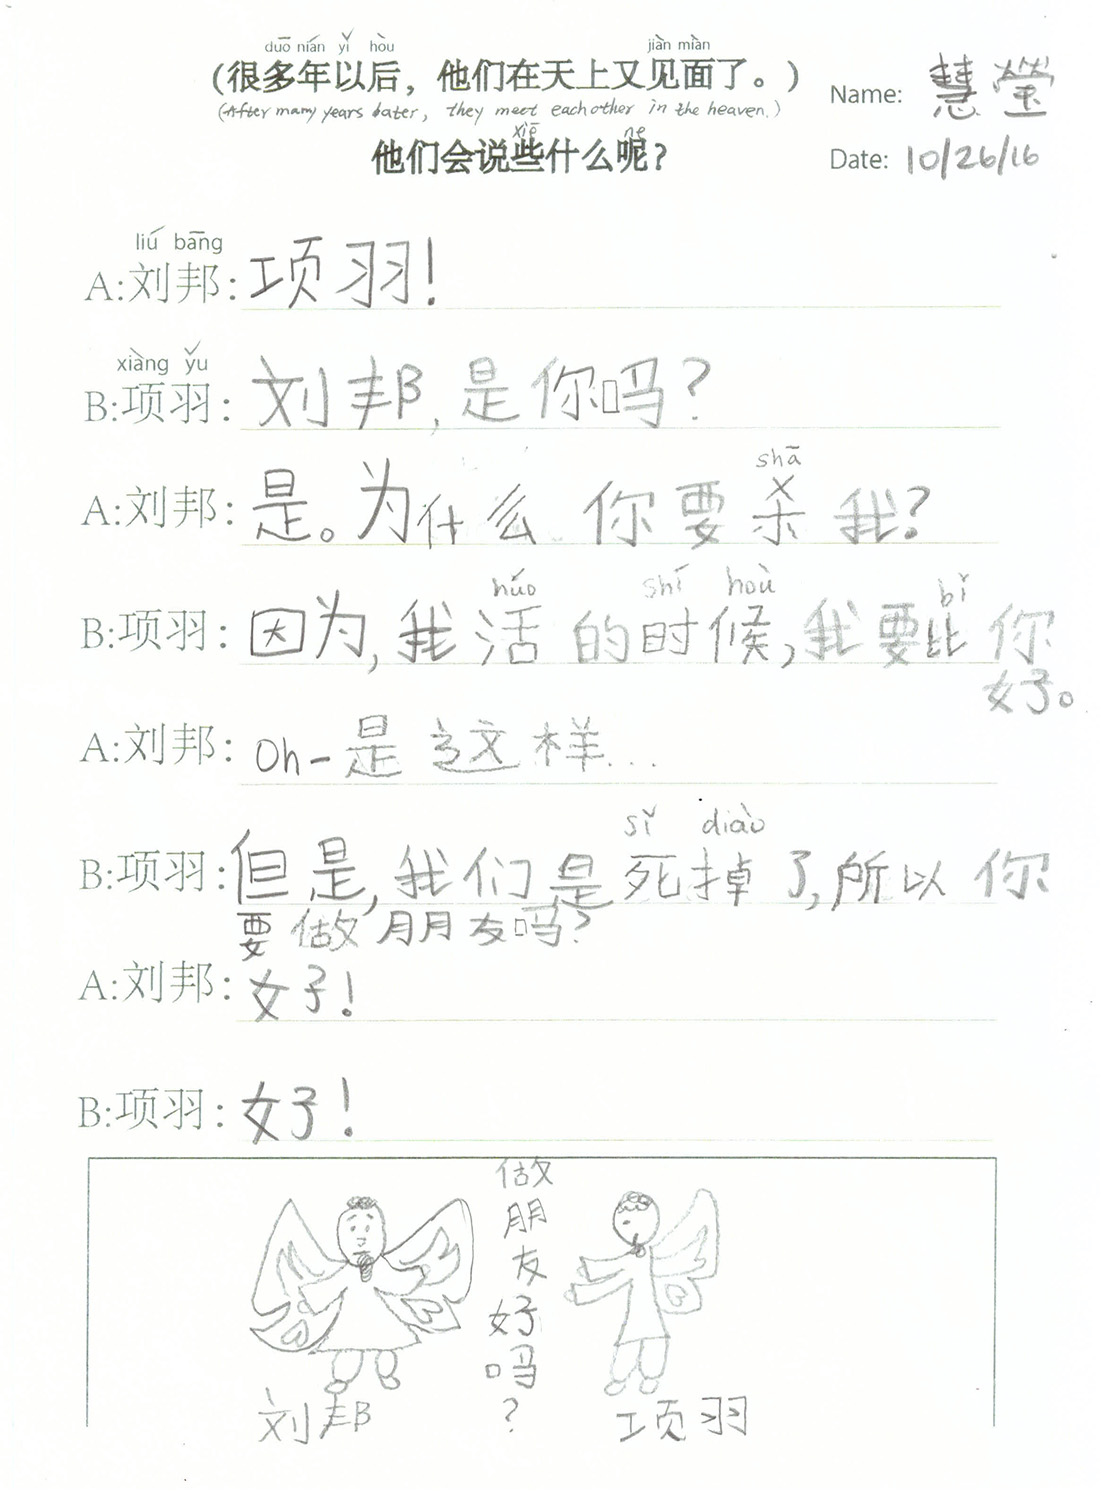 duō nián yǐ hòu jiàn miàn
(很多年以后，他们在天上又见面了。)
(After many years later, they meet each other in the heaven.)
xiē ne
他们会说些什么呢？
Name: 慧 瑩
Date: 10/26/16
liú bāng
A:刘邦：项羽！
xiàng yǔ
B:项羽：刘邦，是你吗？
shā
A:刘邦：是。为什么 你要杀我？
húo shí hoù bǐ
B:项羽：因为，我活的时候，我要比你
好。
A:刘邦：Oh-是这样...
sǐ diào
B:项羽：但是，我们是死掉了，所以你
要做朋友吗？
A:刘邦：好！
B:项羽：好！
做朋友好吗？
刘邦
项羽